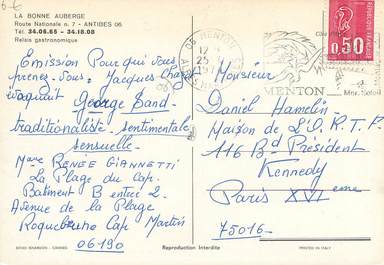 LA BONNE AUBERGE
Route Nationale n. 7 - ANTIBES 06
Tél. 34.06.65 - 34.18.08
Relais gastronomique
Emission Pour qui vous
prenez-vous: Jacques
George Sand
traditionaliste - sentimentale
sensuelle -
Mme RENÉE GIANNETTI
La Plage du Cap.
Batiment B entrée 2-
Avenue de la Plage
Roquebrune Cap Martin
06190
Reproduction Interdite
PRINTED IN ITALY
06 MENTON
12
25
MENTON
REPUBLIQUE FRANÇAISE
0,50
Monsieur
Daniel Hamelin -
Maison de L'O.R.T.F
116 Bd Président
Kennedy
Paris XVIeme
75016-